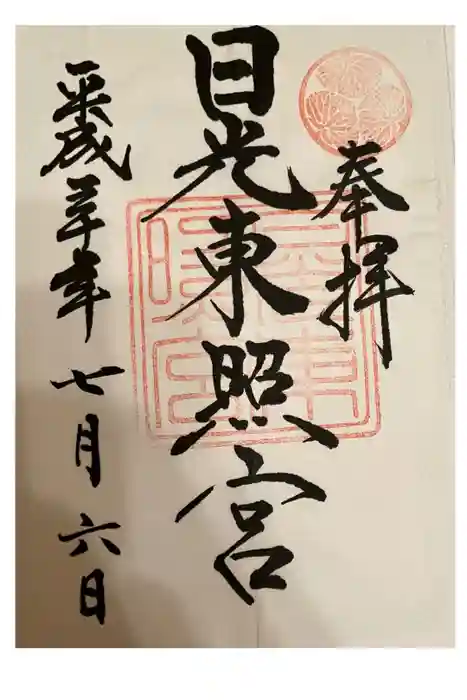 奉拝
日光東照宮
平成三十年七月六日